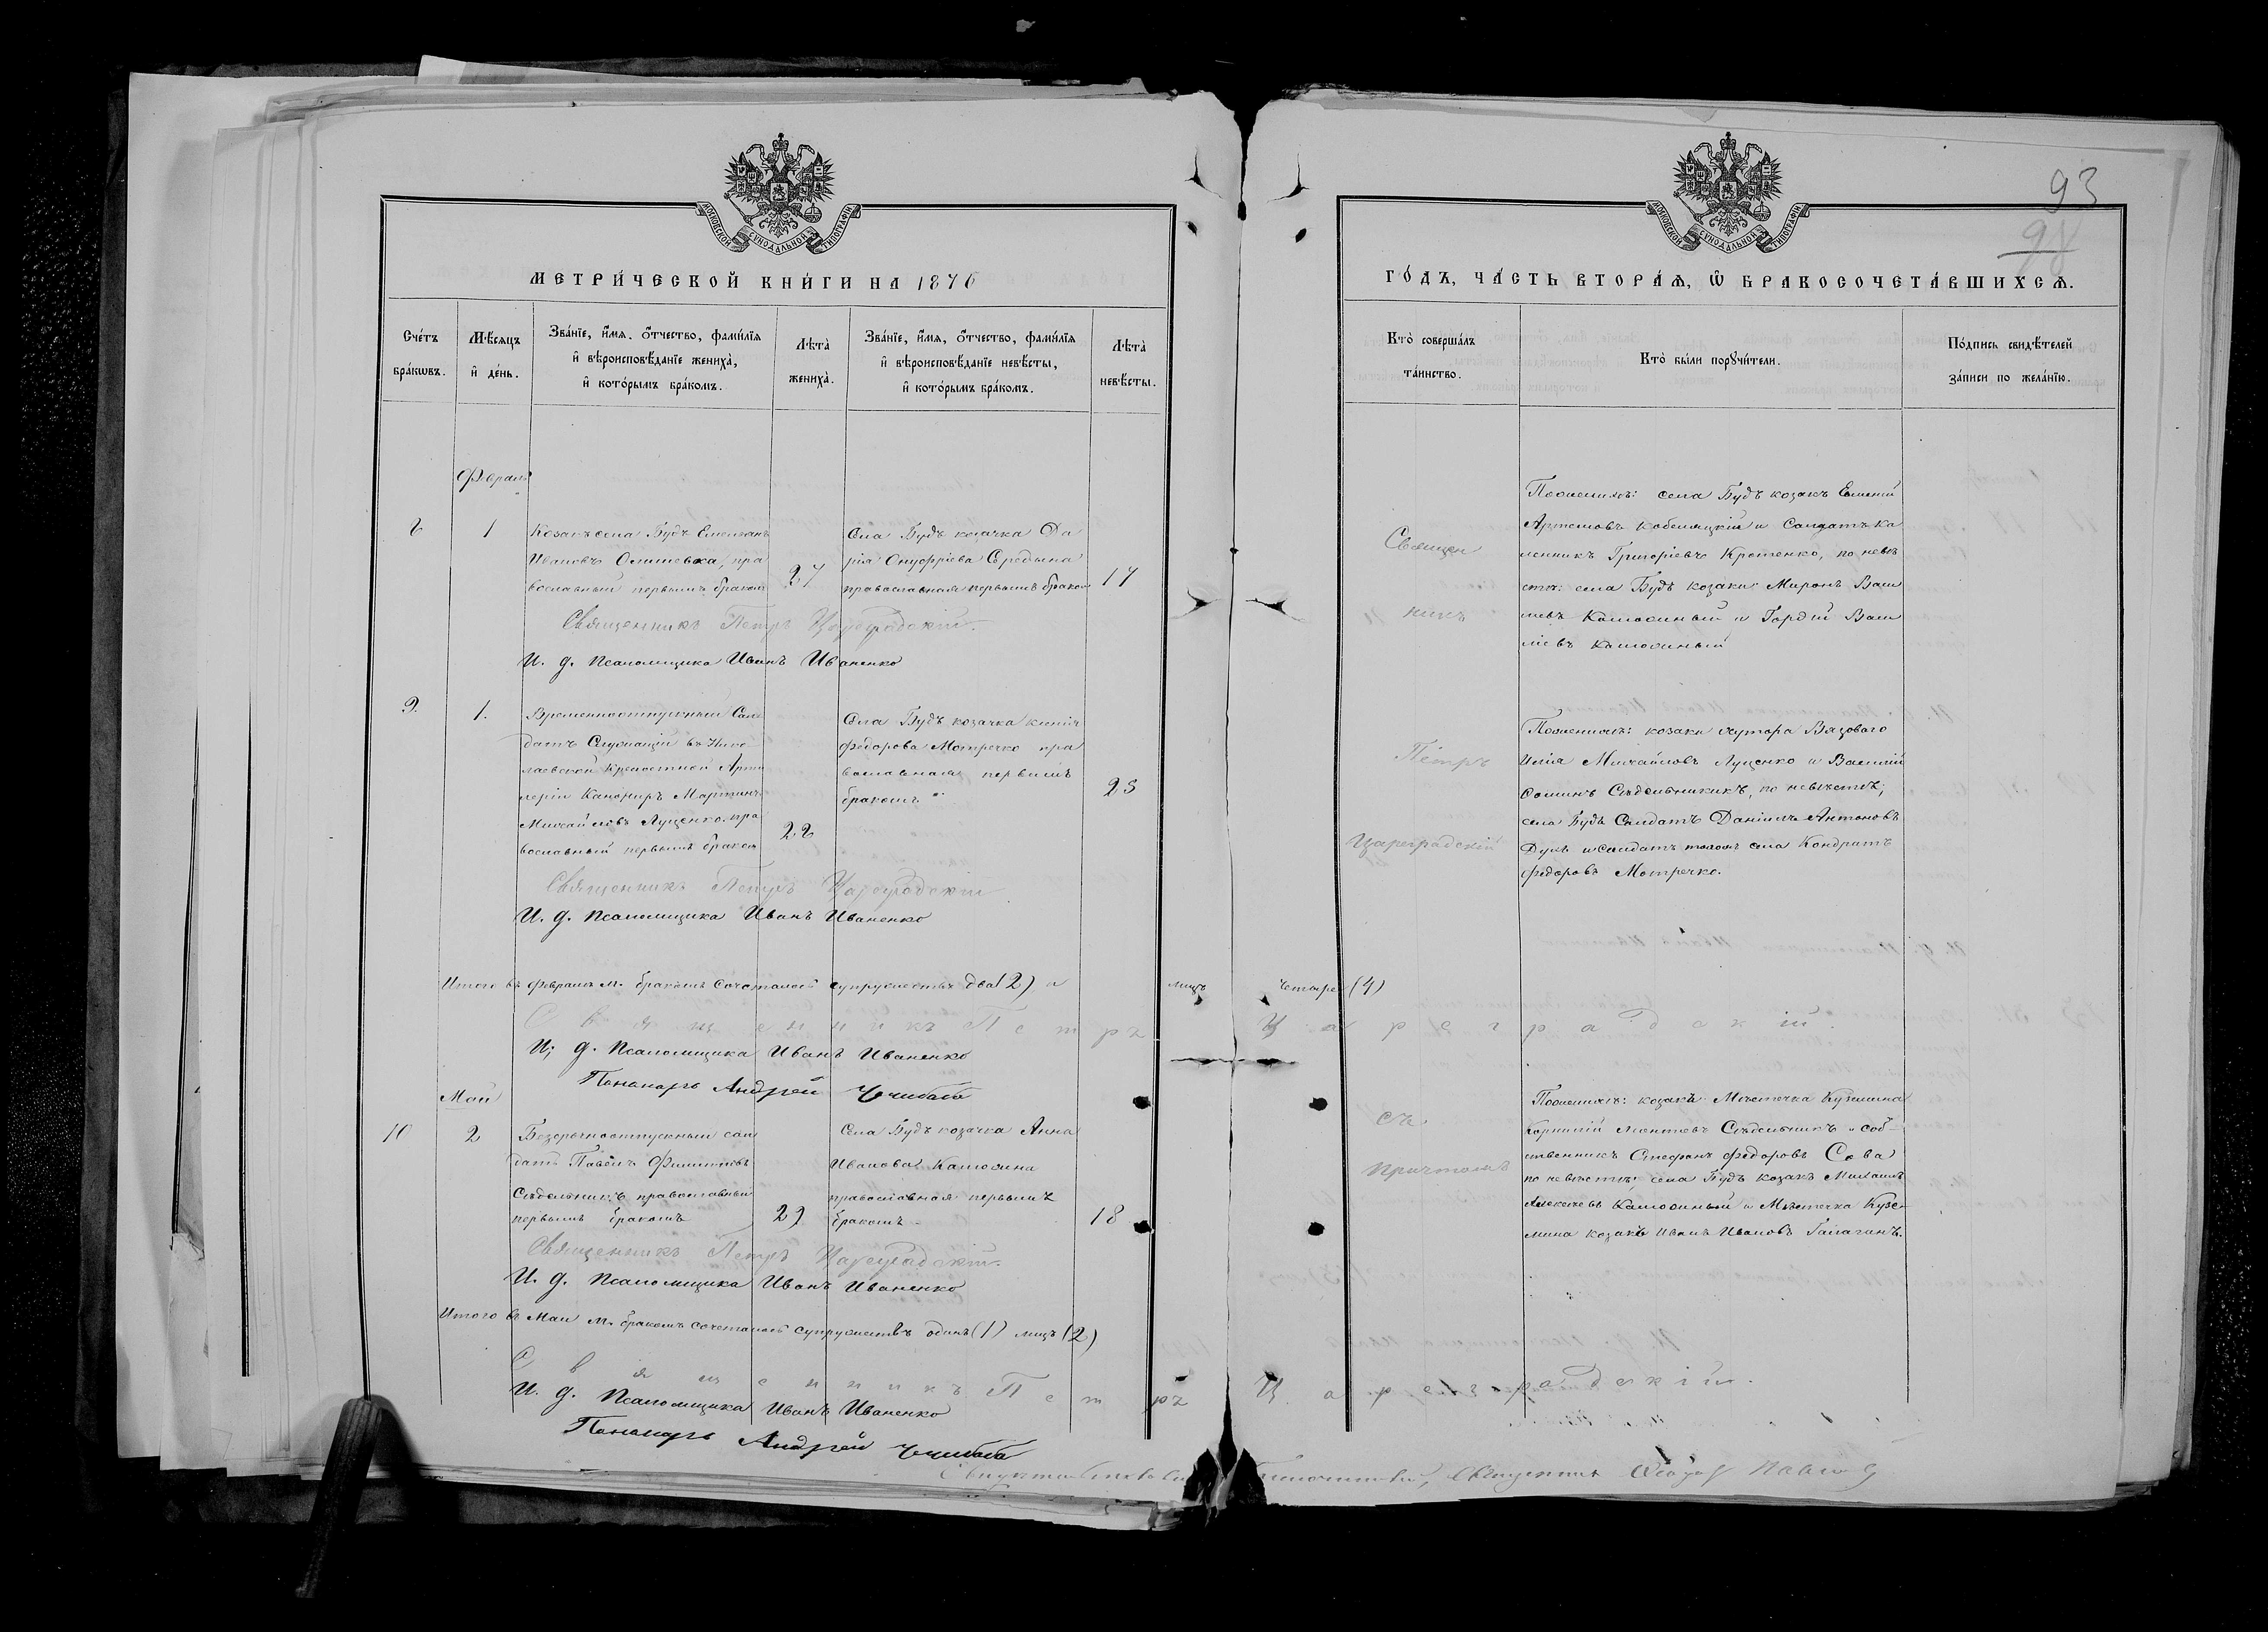 МОСКОВСКОЙ СѴНОДАЛЬНОЙ ТИПОГРАФІИ
МЕТРИ́ЧЕСКОЙ КНИ́ГИ НА 1876
Сче́тъ бра́кѡвъ.
Мѣ́сяцъ и҆ де́нь.
Зва́нїе, и҆́мя, ѻ҆́тчество, фами́лїя
и҆ вѣроисповѣ́данїе жениха̀,
и҆ кото́рымъ бра́комъ.
Лѣта̀ жениха̀.
Зва́нїе, и҆́мя, ѻ҆́тчество, фами́лїя
и҆ вѣроисповѣ́данїе невѣ́сты,
и҆ кото́рымъ бра́комъ.
Лѣта̀ невѣ́сты.
Февраль
8
1
Козакъ села Будъ Емельянъ
Ивановъ пра
вославный первымъ бракомъ
27
Села Будъ козачка Да
рія Онуфріева Середина
православная первымъ бракомъ
17
Священникъ Петръ Цареградскій.
И. д. Псаломщика Иванъ Иваненко
9.
1.
Временноотпускный Сол
датъ Служащій въ Нико
лаевской Крѣпостной Арти
леріи Канониръ Мартинъ
Михайловъ Луценко, пра
вославный первымъ бракомъ
22
Села Будъ козачка
Федорова Мотречко пра
вославная первымъ
бракомъ
25
Священникъ Петръ Цареградскій
И. д. Псаломщика Иванъ Иваненко
Итого въ Февралѣ м. бракомъ сочеталось супружествъ два (2) а лицъ четыре (4)
Священникъ Петръ Цареградскій.
И. д. Псаломщика Иванъ Иваненко
Пономарь Андрей
Май
10
2
Безсрочноотпускный сол
датъ Павелъ Филиповъ
Сѣдельникъ православный
первымъ бракомъ
29
Села Будъ козачка Анна
Иванова
православная первымъ
бракомъ
18
Священникъ Петръ Цареградскій.
И. д. Псаломщика Иванъ Иваненко
Итого въ Маи м. бракомъ сочеталось супружествъ одинъ (1) лицъ (2)
Священникъ Петръ Цареградскій.
И. д. Псаломщика Иванъ Иваненко
Пономарь Андрей
93
МОСКОВСКОЙ СѴНОДАЛЬНОЙ ТИПОГРАФІИ
ГО́ДЪ, ЧА́СТЬ ВТОРА́Ѧ, Ѿ БРАКОСОЧЕТА́ВШИХСѦ.
Кто̀ соверша́лъ та́инство.
Кто̀ бы́ли порꙋчи́тели.
По́дпись свидѣ́телей за́писи по жела́нїю.
Священ
никъ
Петръ
Цареградскій
съ
причтомъ
По женихѣ: села Будъ козакъ Евменій
Артемовъ Кобеляцкій и Солдатъ Ка
Григоріевъ Кротенко, по невѣ
стѣ: села Будъ козаки: Миронъ Васи
левъ и Гордій Васи
ліевъ
По женихѣ: козаки хутора Вязоваго
Илія Михайловъ Луценко и Василій
Сѣдельникикъ, по невѣстѣ;
села Будъ Солдатъ Даніилъ Антоновъ
и солдатъ того села Кондратъ
Федоровъ Мотречко.
По женихѣ: козакъ Мѣстечка Куземина
Корнилій Леонтіевъ Сѣдельникъ и соб-
ственникъ Стефанъ Федоровъ Сова
по невѣстѣ: села Будъ козакъ Михаилъ
Алексѣевъ и Мѣстечка Кузе-
мина козакъ Иванъ Ивановъ Галаганъ.